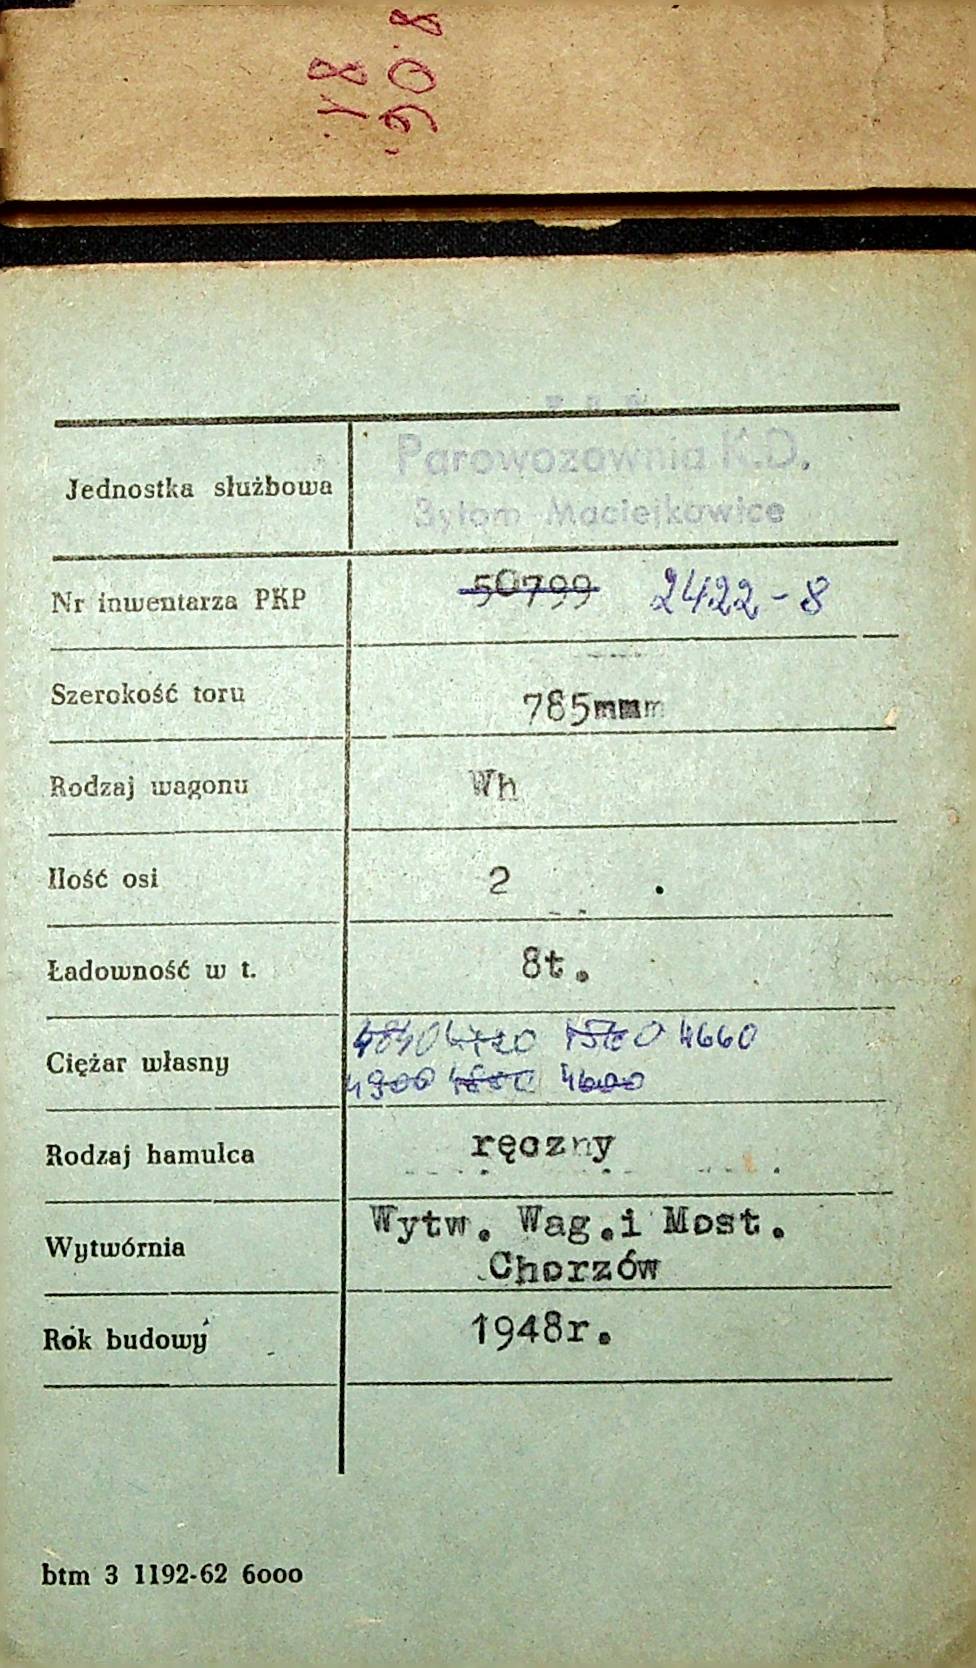 Jednostka służbowa
Parowozownia K.D.
Bytom Maciejkowice
Nr inwentarza PKP 50799 2422-8
Szerokość toru 785mmm
Rodzaj wagonu Wh
Ilość osi 2
Ładowność w t. 8t.
Ciężar własny 4840 4660
4900 4600
Rodzaj hamulca ręczny
Wytwórnia Wytw. Wag.i Most.
Chorzów
Rok budowy 1948r.
btm 3 1192-62 6000